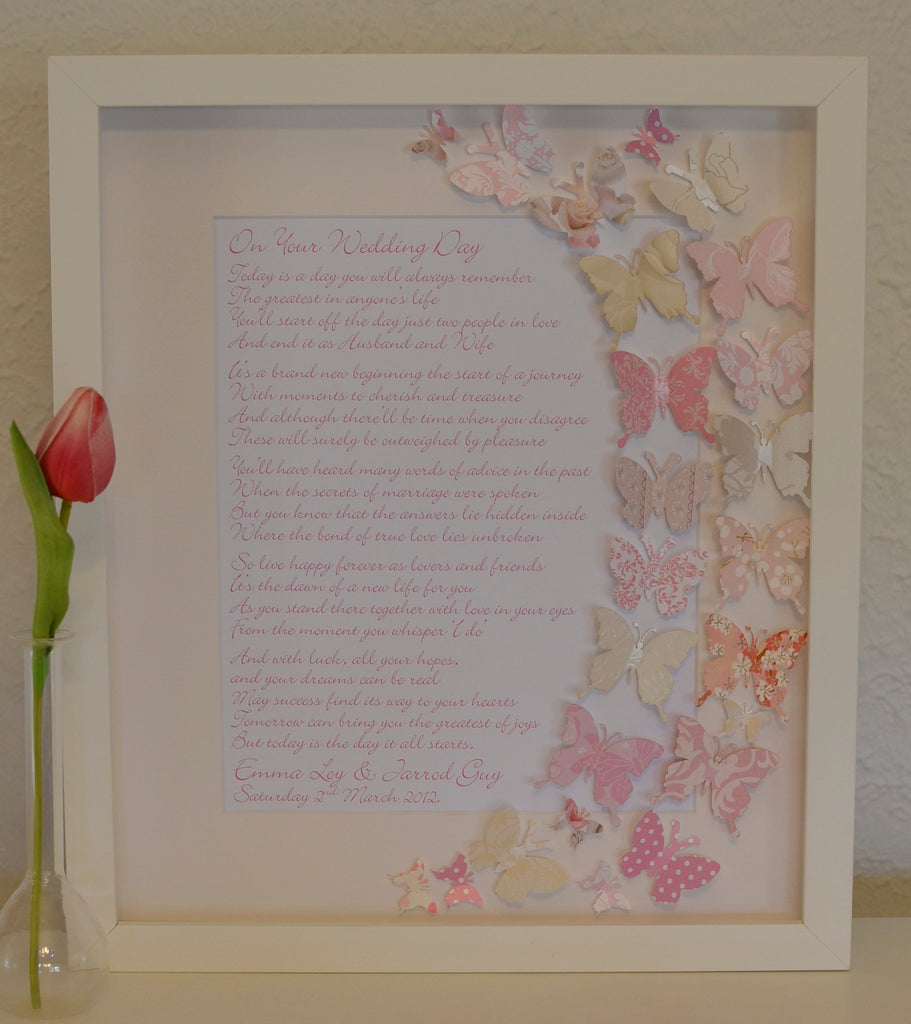 On Your Wedding Day
Today is a day you will always remember
The greatest in anyone's life
You'll start off the day just two people in love
And end it as Husband and Wife
It's a brand new beginning the start of a journey
With moments to cherish and treasure
And although there'll be time when you disagree
These will surely be outweighed by pleasure
You'll have heard many words of advice in the past
When the secrets of marriage were spoken
But you know that the answers lie hidden inside
Where the bond of true love lies unbroken
So live happy forever as lovers and friends
It's the dawn of a new life for you
As you stand there together with love in your eyes
From the moment you whisper 'I do'
And with luck, all your hopes,
and your dreams can be real
May success find its way to your hearts
Tomorrow can bring you the greatest of joys
But today is the day it all starts.
Emma Loy & Jarrod Guy
Saturday 2nd March 2012.